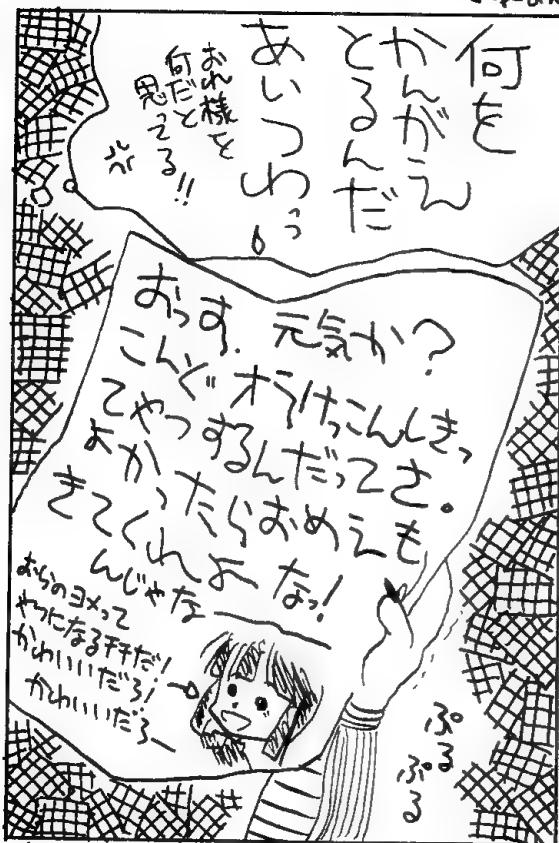 何を
かんがえ
とるんだ
あいつわっ
おれ様を
何だと
思ってる!!
おっす、元気か?
こんど オラけっこんしきっ
てやつするんだってさ。
よかったらおめえも
きてくれよーなっ!
んじゃなー
おらのヨメって
やつになるチチだ!
かわいいだろ!
かわいいだろー
ぷる
ぷる